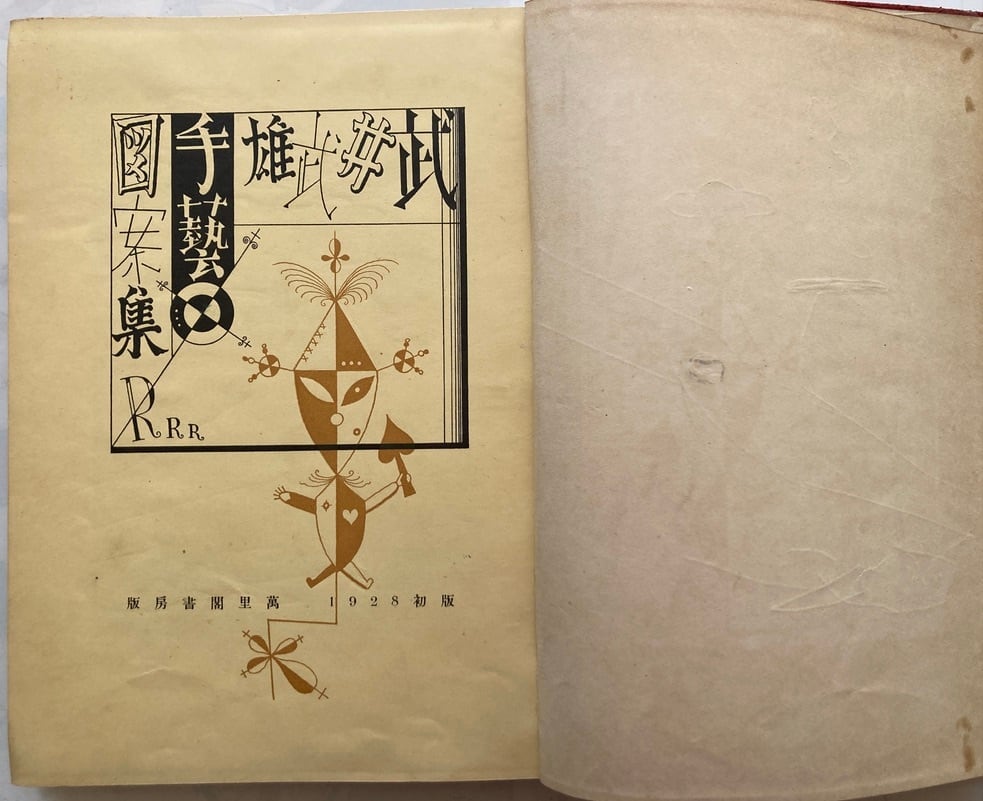 武井武雄
手藝
図案集
RRR
1928初版
萬里閣書房版